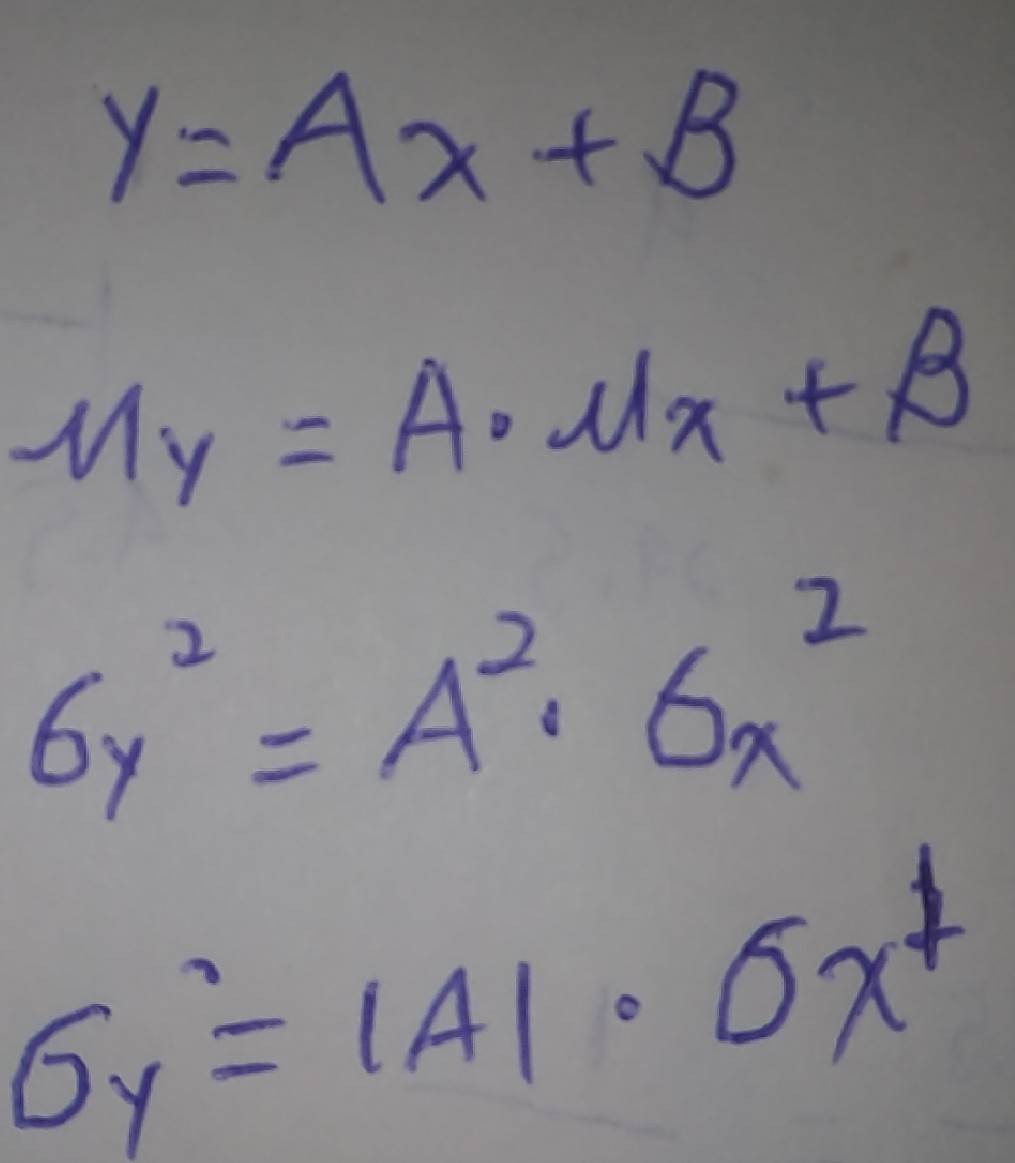 Y = Ax + B
μy = A · μx + B
σy² = A² · σx²
σy = |A| · σx